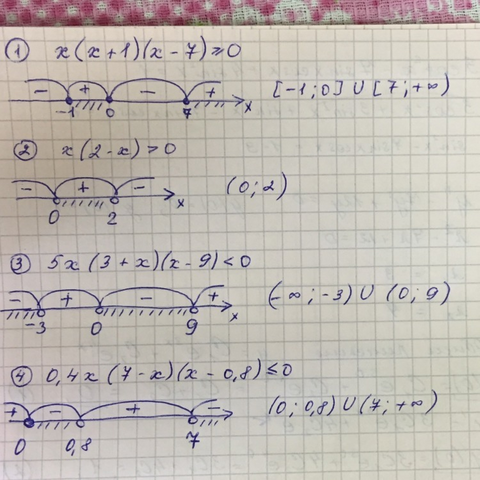 ① x(x+1)(x-7)≥0
- + - +
-1 0 7 x
[-1;0] ∪ [7;+∞)
② x(2-x)>0
- + -
0 2 x
(0;2)
③ 5x(3+x)(x-9)<0
- + - +
-3 0 9 x
(-∞;-3) ∪ (0;9)
④ 0,4x(7-x)(x-0,8)≤0
+ - + -
0 0,8 7
(0;0,8) ∪ (7;+∞)